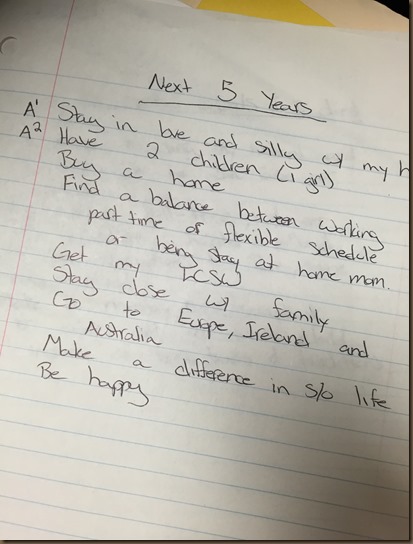 Next 5 Years
A¹ Stay in love and silly w/ my h
A² Have 2 children (1 girl)
Buy a home
Find a balance between working
part time or flexible schedule
or being stay at home mom.
Get my LCSW
Stay close w/ family
Go to Europe, Ireland and
Australia
Make a difference in s/o life
Be happy